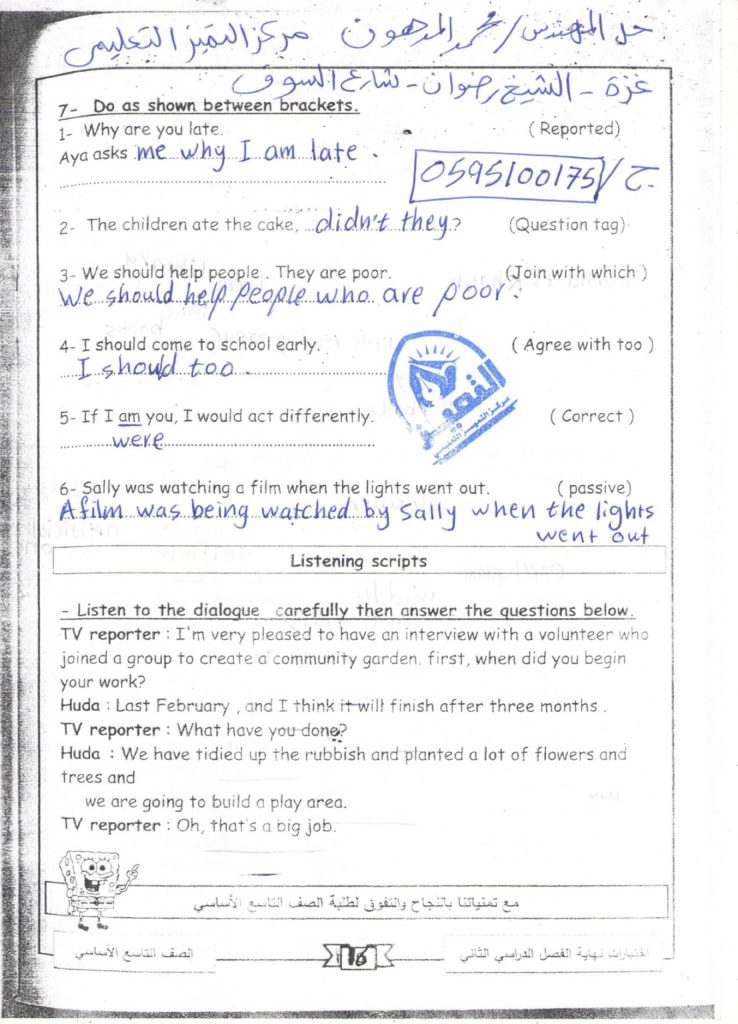 حل المهندس / محمد المدهون مركز التميز التعليمي
غزة - الشيخ رضوان - شارع السوق
7- Do as shown between brackets.
1- Why are you late. ( Reported)
Aya asks me why I am late .
0595100175 / ج
2- The children ate the cake, didn't they ? (Question tag)
3- We should help people . They are poor. (Join with which )
We should help people who are poor.
4- I should come to school early. ( Agree with too )
I should too .
التميز
مركز التميز التعليمي
5- If I am you, I would act differently. ( Correct )
were
6- Sally was watching a film when the lights went out. ( passive)
A film was being watched by Sally when the lights
went out
Listening scripts
- Listen to the dialogue carefully then answer the questions below.
TV reporter : I'm very pleased to have an interview with a volunteer who
joined a group to create a community garden. first, when did you begin
your work?
Huda : Last February , and I think it will finish after three months .
TV reporter : What have you done?
Huda : We have tidied up the rubbish and planted a lot of flowers and
trees and
we are going to build a play area.
TV reporter : Oh, that's a big job.
مع تمنياتنا بالنجاح والتفوق لطلبة الصف التاسع الأساسي
اختبارات نهاية الفصل الدراسي الثاني 16 الصف التاسع الأساسي